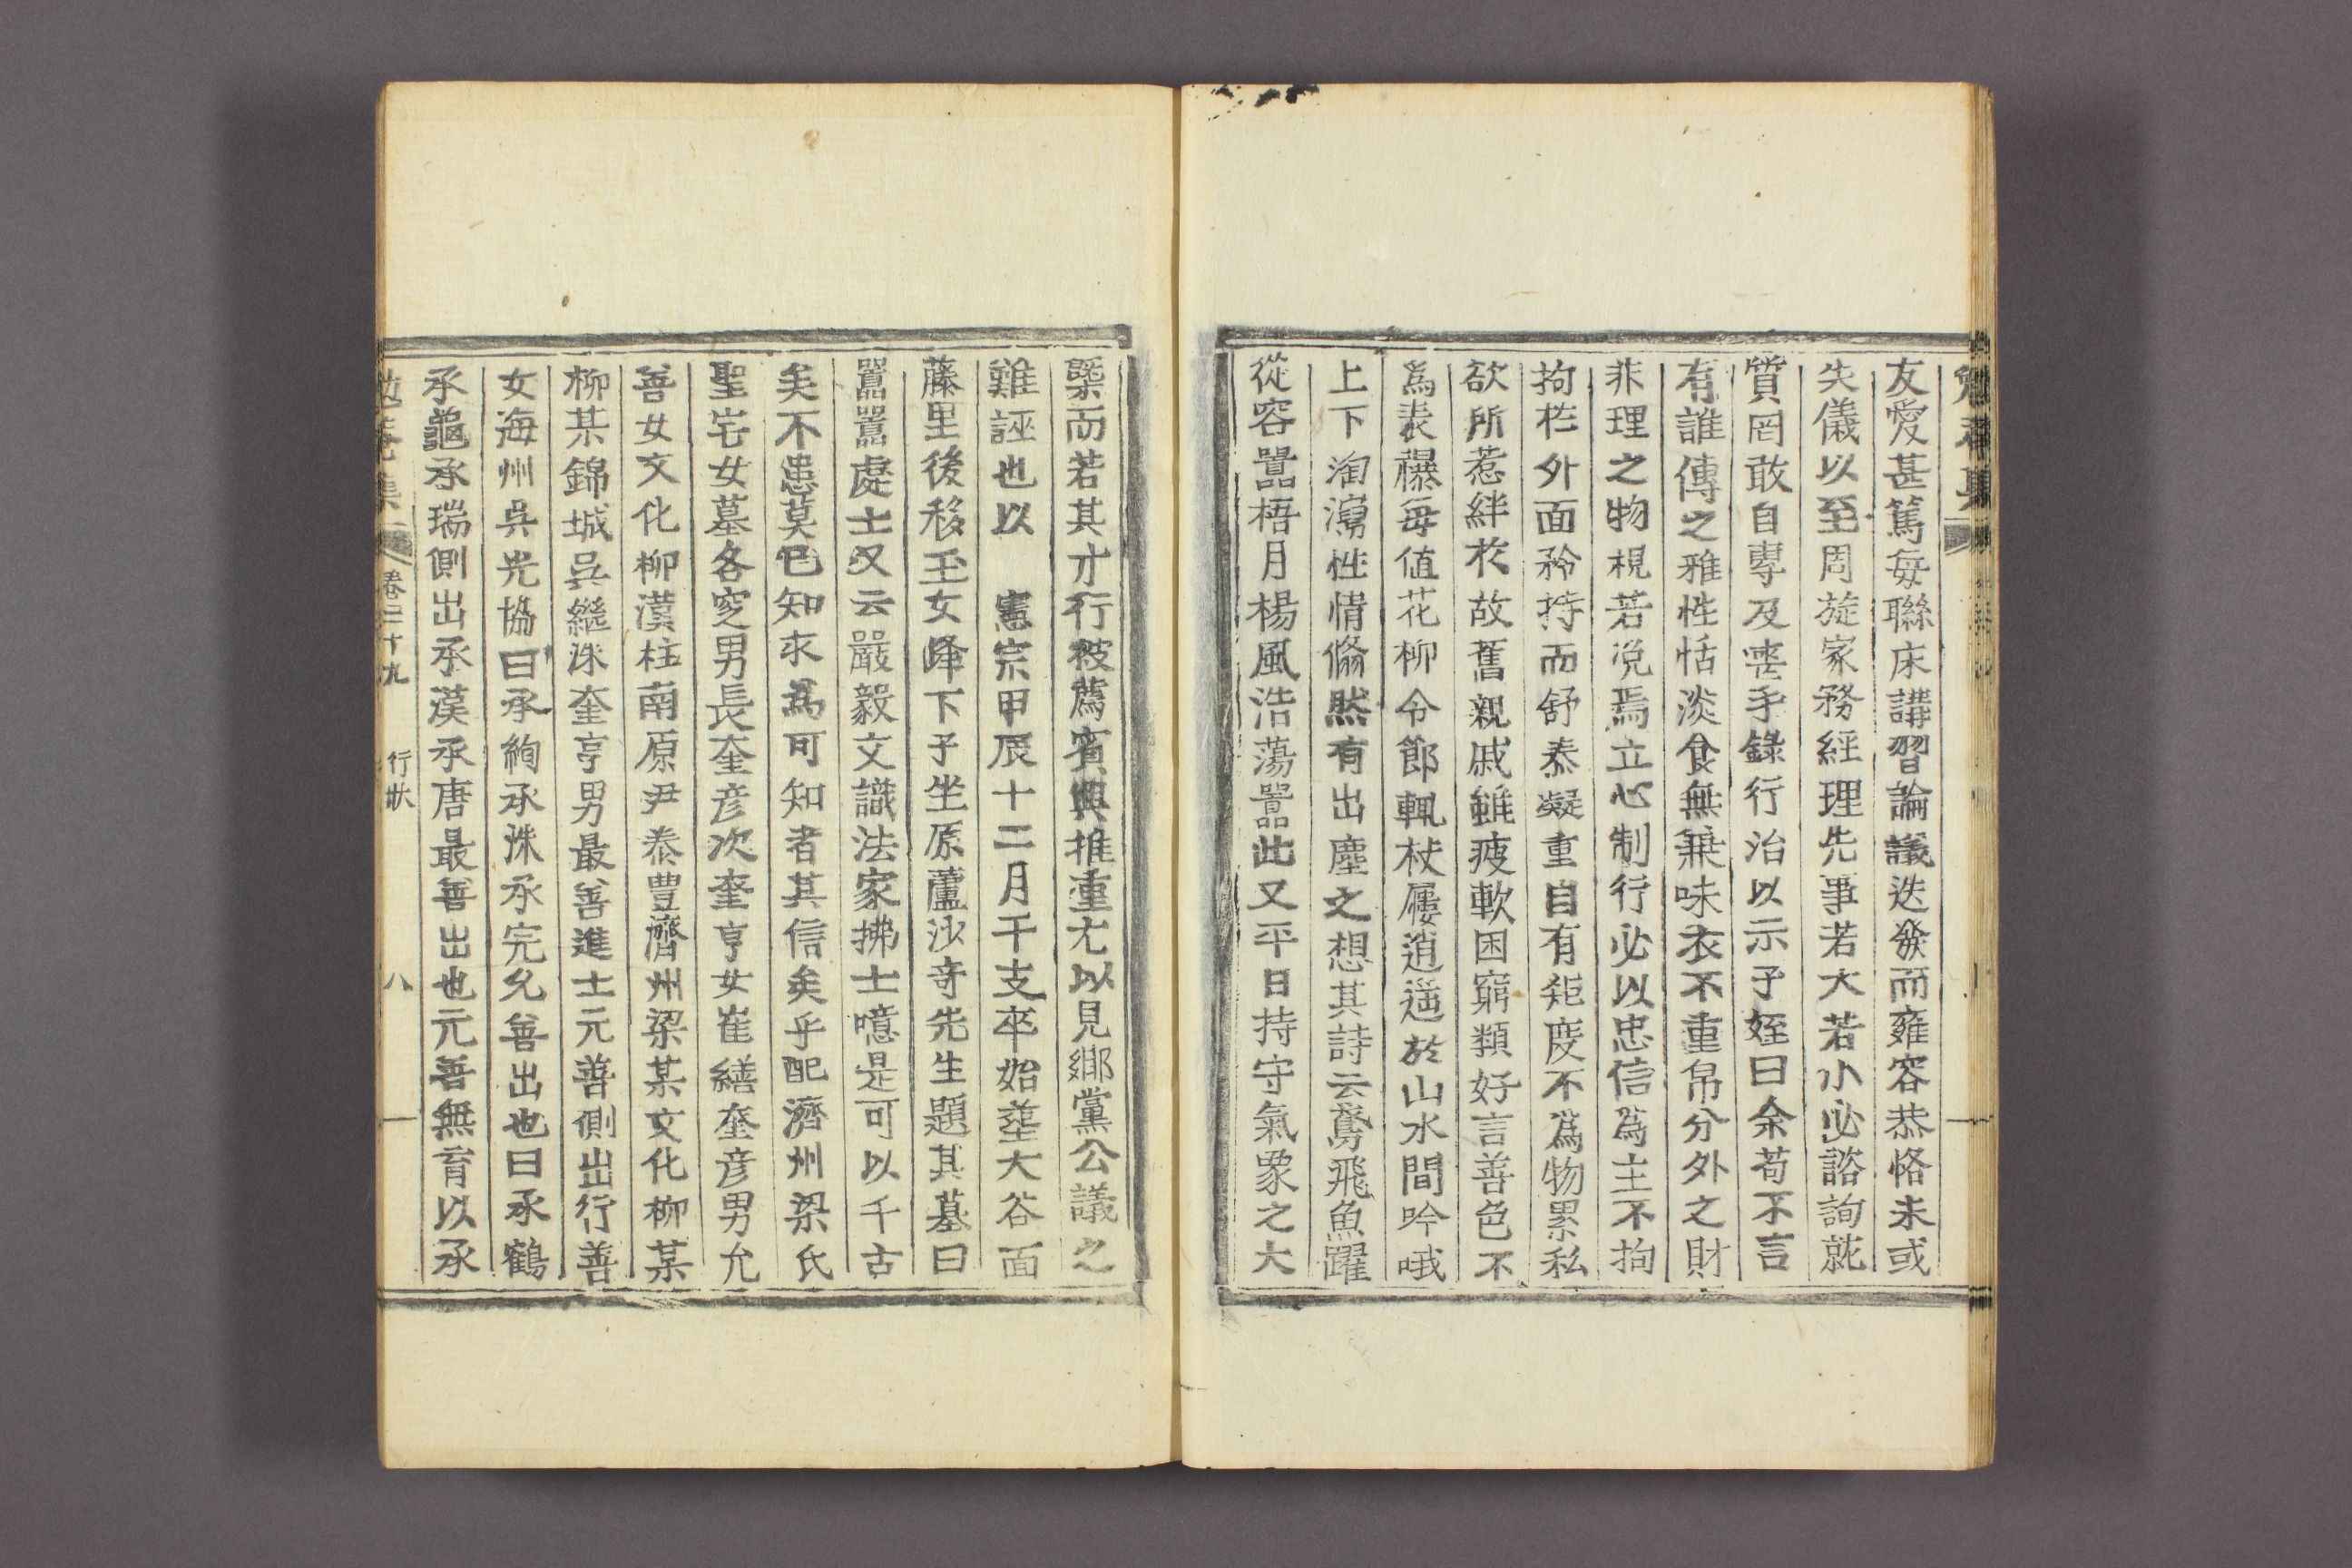 友愛甚篤每聯床講習論議迭發而雍容恭恪未或
失儀以至周旋家務經理先事若大若小必諮詢就
質罔敢自專及喪手錄行治以示子姪曰余苟不言
有誰傳之雅性恬淡食無兼味衣不重帛分外之財
非理之物視若凂焉立心制行必以忠信為主不拘
拘於外面矜持而舒泰凝重自有矩度不爲物累私
欲所惹絆於故舊親戚雖疲軟困窮類好言善色不
爲表襮每値花柳令節輒杖屨逍遙於山水間吟哦
上下淘瀉性情翛然有出塵之想其詩云鳶飛魚躍
從容噐梧月楊風浩蕩噐此又平日持守氣象之大
槩而若其才行被薦賓興推重尤以見鄕黨公議之
難誣也以 憲宗甲辰十二月干支卒始葬大谷面
藤里後移玉女峰下子坐原蘆沙奇先生題其墓曰
囂囂處士又云嚴毅文識法家拂士噫是可以千古
矣不患莫己知求爲可知者其信矣乎配濟州梁氏
聖宅女墓各窆男長奎彦次奎亨女崔繕奎彦男允
善女文化柳漢柱南原尹泰豊濟州梁某文化柳某
柳某錦城吳繼洙奎亨男最善進士元善側出行善
女海州吳光協曰承絢承洙承完允善出也曰承鶴
承龜承瑞側出承漢承唐最善出也元善無育以承
勉菴集 卷二十九 行狀 八